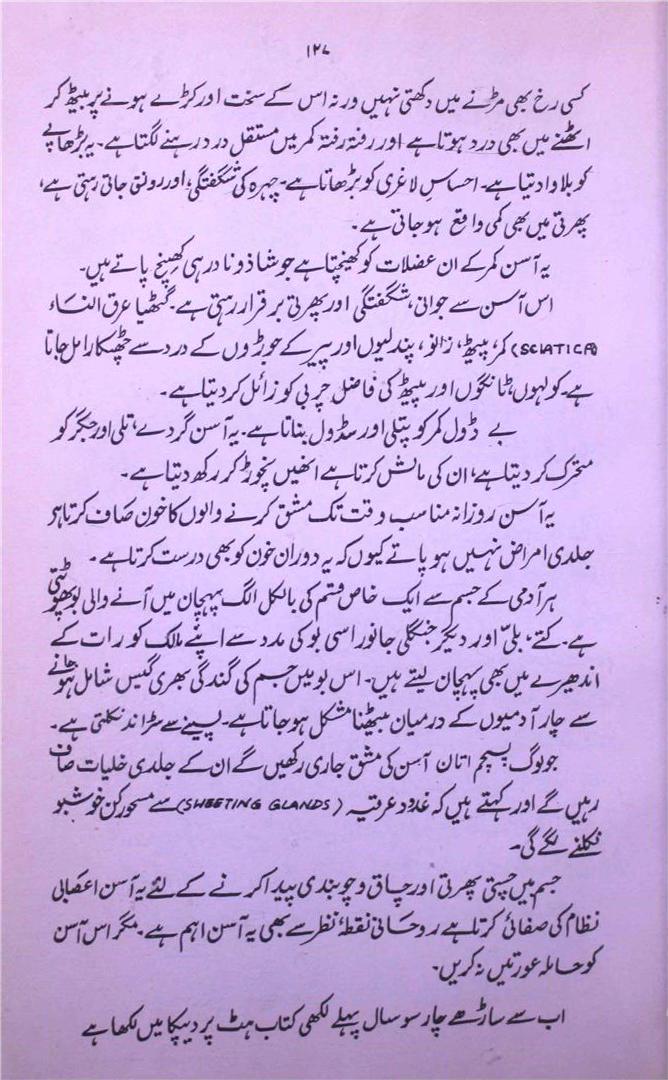 ۱۲۷
کسی رخ بھی مڑنے میں دکھتی نہیں ورنہ اس کے سخت اور کڑے ہونے پر بیٹھ کر
اٹھنے میں بھی درد ہوتا ہے اور رفتہ رفتہ کمر میں مستقل درد رہنے لگتا ہے۔ یہ بڑھاپے
کو بلاوا دیتا ہے۔ احساسِ لاغری کو بڑھاتا ہے۔ چہرہ کی شگفتگی، اور رونق جاتی رہتی ہے،
پھرتی میں بھی کمی واقع ہو جاتی ہے۔
یہ آسن کمر کے ان عضلات کو کھینچتا ہے جو شاذ و نادر ہی کھینچ پاتے ہیں۔
اس آسن سے جوانی، شگفتگی اور پھرتی برقرار رہتی ہے۔ گٹھیا عرق النساء
(SCIATICA) کمر، پیٹھ، زانو، پنڈلیوں اور پیر کے جوڑوں کے درد سے چھٹکارا مل جاتا
ہے۔ کولہوں، ٹانگوں اور پیٹھ کی فاضل چربی کو زائل کر دیتا ہے۔
بے ڈول کمر کو پتلی اور سڈول بناتا ہے۔ یہ آسن گردے، تلی اور جگر کو
متحرک کر دیتا ہے، ان کی مالش کرتا ہے انھیں نچوڑ کر رکھ دیتا ہے۔
یہ آسن روزانہ مناسب وقت تک مشق کرنے والوں کا خون صاف کرتا ہے
جلدی امراض نہیں ہو پاتے کیوں کہ یہ دوران خون کو بھی درست کرتا ہے۔
ہر آدمی کے جسم سے ایک خاص قسم کی بالکل الگ پہچان میں آنے والی بو پھوٹتی
ہے۔ کتے، بلی اور دیگر جنگلی جانور اسی بو کی مدد سے اپنے مالک کو رات کے
اندھیرے میں بھی پہچان لیتے ہیں۔ اس بو میں جسم کی گندگی بھری گیس شامل ہو جانے
سے چار آدمیوں کے درمیان بیٹھنا مشکل ہو جاتا ہے۔ پسینے سے سڑاند نکلتی ہے۔
جو لوگ پسچم اتان آسن کی مشق جاری رکھیں گے ان کے جلدی خلیات صاف
رہیں گے اور کہتے ہیں کہ غدود عرقیہ (SWEETING GLANDS) سے مسحور کن خوشبو
نکلنے لگے گی۔
جسم میں چستی پھرتی اور چاق و چوبندی پیدا کرنے کے لئے یہ آسن اعصابی
نظام کی صفائی کرتا ہے روحانی نقطۂ نظر سے بھی یہ آسن اہم ہے۔ مگر اس آسن
کو حاملہ عورتیں نہ کریں۔
اب سے ساڑھے چار سو سال پہلے لکھی کتاب ہٹ پردیپکا میں لکھا ہے